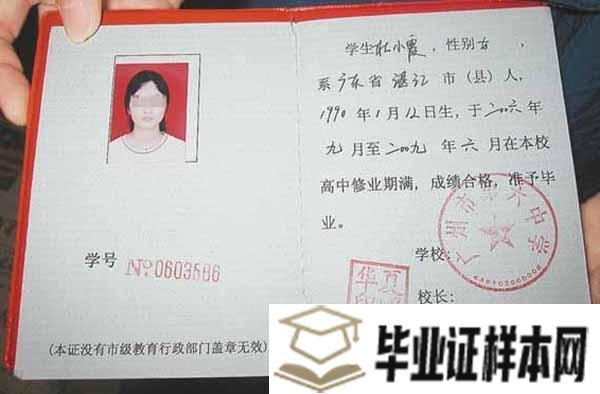 学生杜小霞，性别女，
系广东省湛江市（县）人，
1990年1月12日生，于二00六年
九月至二00九年六月在本校
高中修业期满，成绩合格，准予毕
业。
学号 No 0603586
学校：
校长：
广州市第六中学
（本证没有市级教育行政部门盖章无效）
毕业证样本网